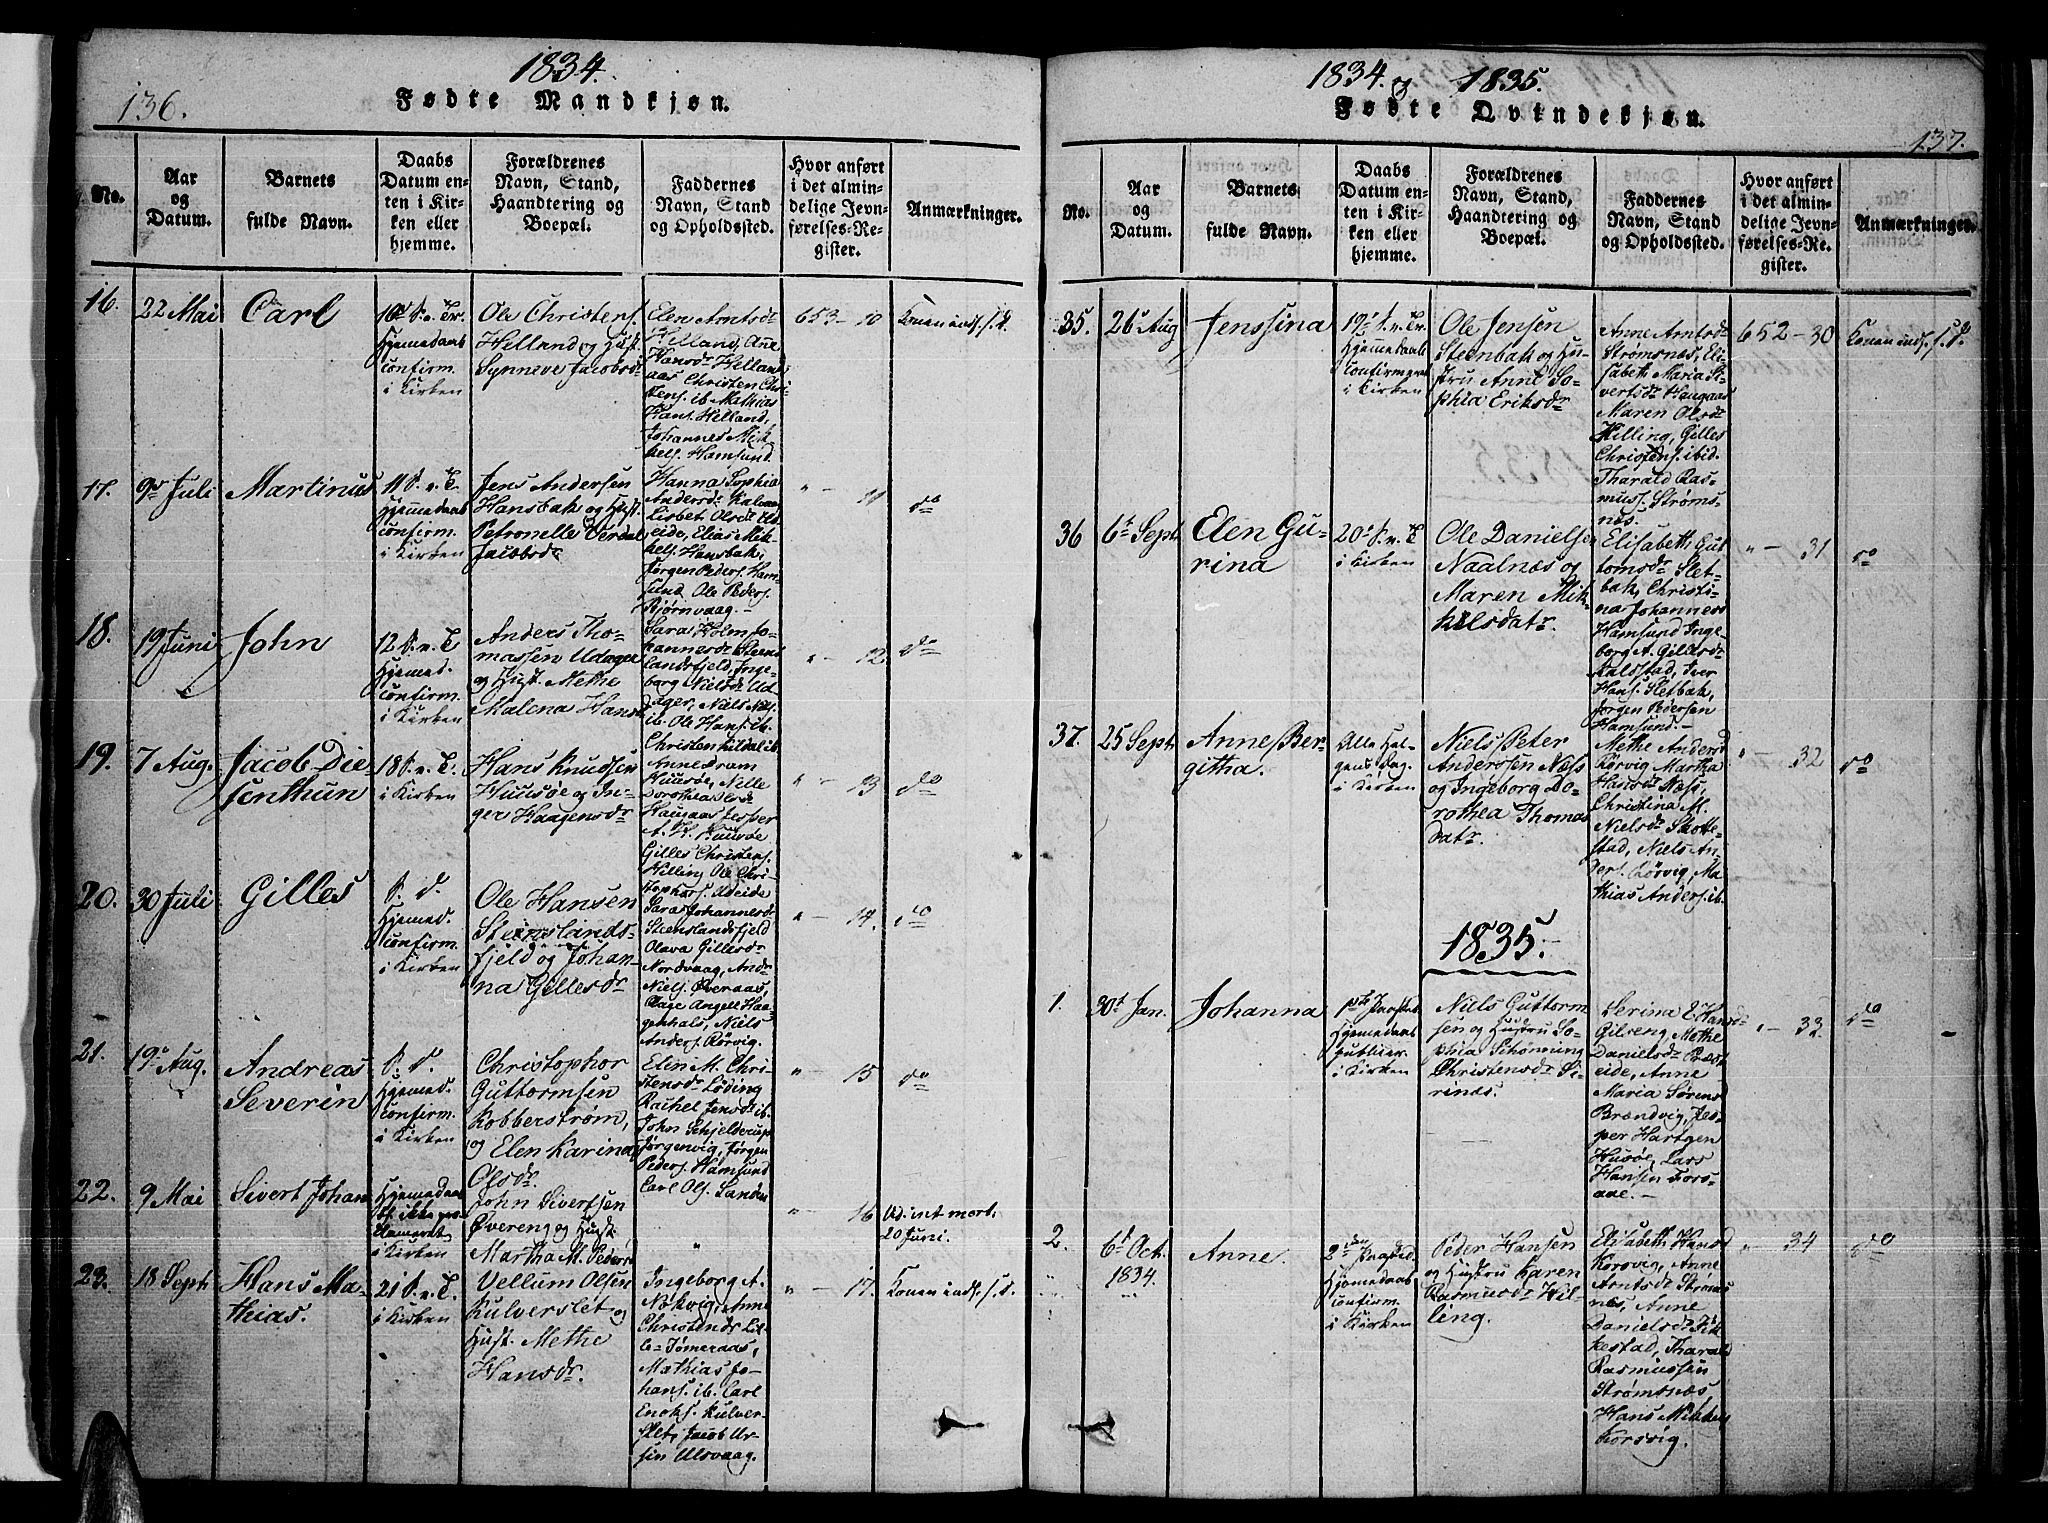 1834.
136.
Fødte Mandkjøn.
No.
Aar
og
Datum.
Barnets
fulde Navn.
Daabs
Datum en-
ten i Kir-
ken eller
hjemme.
Forældrenes
Navn, Stand,
Haandtering og
Boepæl.
Faddernes
Navn, Stand
og Opholdssted.
Hvor anført
i det almin-
delige Jevn-
førelses-Re-
gister.
Anmærkninger.
16.
22 Mai
Carl
Hjemmedaab
confirm.
i Kirken
Ole Christens.
Helland og Hust.
Synneve Jacobsdr
Elen Arntsdr
Helland, Ane
Hansdr Helland
aas Christen Chri-
stens. ib. Mathias
Hans. Helland,
Johannes Mik-
kels. Hamsund.
653 - 10
Konen inds. s. d.
17.
9de Juli
Martinus
11 S. e. T.
Hjemmedaab
confirm.
i Kirken
Jens Andersen
Hansbak og Hust.
Petronelle Verdal
Jacobsdr
Hanna Sophia
Andersdr Kalvaa
Lisbet Olsdr Ud-
eide, Elias Mik-
kels. Hansbak,
Jørgen Peders. Ham-
sund, Ole Peders.
Bjørnvaag. -
" - 11
do
18.
19 Juni
John
12 S. e. T.
Hjemmed.
confirm.
i Kirken
Anders Tho-
massen Udager
og Hust. Methe
Malena Hansdr
Sara Holm Jo-
hannesdr Steens-
landsfjeld, Inge-
borg Nielsdr Ud-
ager, Niels
ib. Ole Hans. ib.
Christen Lildal ib.
" - 12
do
19.
7 Aug.
Jacob Die
senthun
18 S. e. T.
i Kirken
Hans Knudsen
Huusøe og In-
ger Haagensdr
Anne Dram
Huusøe, Nelle
Dorothea Olsdr
Haugaas Jesper
A. H. Huusøe
Gilles Christens.
Hilling Ole Chri-
stophers. Udeide
" - 13
do
20.
30 Juli
Gilles
S. d.
Hjemmed.
confirm.
i Kirken
Ole Hansen
Steenslands-
fjeld og Johan-
na Gillesdr
Sara Johannesdr
Steenslandsfjeld
Olava Gillesdr
Nordvaag, Andr.
Niels. Øveraas,
Aage Angell Haa-
genhals, Niels
Anders. Rørvig.
" - 14.
do
21.
19de Aug.
Andreas
Severin
S. d.
Hjemmed.
confirm.
i Kirken
Christophor
Guttormsen
Robberstrøm,
og Elen Karina
Olsdr.
Elen M. Chri-
stensdr Løding
Rachel Jensdr ib.
John Schjelderup
Jørgenvig, Jørgen
Peders. Hamsund
Carl Ols. Sanden
" - 15
do
22.
9 Mai
Sivert Johan
Hjemmedaab
ikke pro-
clameret
i Kirken
John Sivertsen
Øvereng og Hust.
Martha M. Pedersdr
"
" - 16
Ud. int. mort.
20 Juni.
23.
18 Sept.
Hans Ma-
thias.
21 S. e. T.
i Kirken
Vellum Olsen
Kulverslet og
Hust. Methe
Hansdr.
Ingeborg A.
Nøkvig, Anne
Christensdr Lil-
le-Tømeraas,
Mathias Jo-
hans. ib. Carl
Enoks. Kulver-
slet, Jacob Ur-
sin Ulsvaag.
" - 17.
Konen inds. s. d.
1834. og 1835.
Fødte Qvindekjøn.
137.
No.
Aar
og
Datum.
Barnets
fulde Navn.
Daabs
Datum en-
ten i Kir-
ken eller
hjemme.
Forældrenes
Navn, Stand,
Haandtering og
Boepæl.
Faddernes
Navn, Stand
og Opholdssted.
Hvor anført
i det almin-
delige Jevn-
førelses-Re-
gister.
Anmærkninger.
35.
26de Aug
Jenssina
19de S. e. Tr.
Hjemmedaab
Confirmeret
i Kirken
Ole Jensen
Steenbak og Hu-
stru Anne So-
phia Eriksdr
Anne Arntsdr
Strømsnes, Eli-
sabeth Maria Si-
vertsdr Haugaas
Maren Olsdr
Hilling, Gilles
Christens. ibid.
Tharald Ras-
muss. Strøms-
nes.
652 - 30
Konen inds. s. d.
36
6te Sept.
Elen Gu-
rina
20de S. e. T.
i Kirken
Ole Danielsen
Naalnæs og
Maren Mik-
kelsdatr.
Elisabeth Gut-
tormsdr Slet-
bak, Christi-
na Johannesdr
Hamsund Inge-
borg A. Gillesdr
Kaldstad, Iver
Hans. Sletbak,
Jørgen Pedersen
Hamsund. -
" - 31
do
37.
25 Sept.
Anne Ber-
githa.
Alle Hel-
gens Dag.
i Kirken
Niels Peter
Andersen Næss
og Ingeborg Do-
rothea Thomas
datr.
Methe Andersdr
Rørvig Martha
Hansdr Næss,
Christina M.
Nielsdr Skotte-
stad, Niels An-
ders. Rørvig, Ma-
thias Anders. ib.
" - 32
do
1835.
1.
30t Jan.
Johanna
Hjemmedaab
publicer.
i Kirken
Niels Guttorm-
sen og Hustru So-
phia Schønning
Christensdr Si-
rines.
Serina E. Hans-
Gilreng, Methe
Danielsdr Præst-
eide, Anne
Maria Sørens
Brændvig, Jes-
per Hartgen
Husøe, Lars
Hansen Fors-
aae. -
" - 33.
do
2.
6t Oct.
1834.
Anne.
Hjemmedaab
confirm.
i Kirken
Peder Hansen
og Hustru Karen
Rasmusdr Hil-
ling.
Elisabeth Hansd
Korsvig, Anne
Arntsdr Strøms
nes, Anne
Danielsdr Fik-
kestad, Tharald
Rasmussen
Strømsnæs,
Hans Mikkels
Korsvig.
" - 34
do